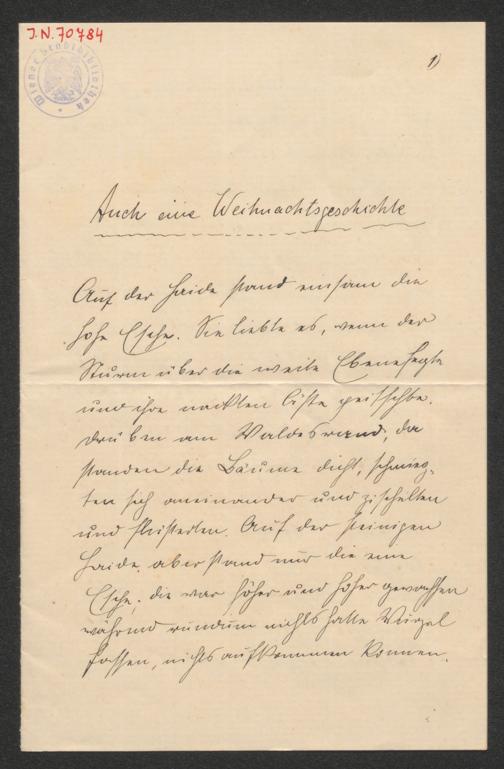 J.N. 70784
Wiener Stadtbibliothek
1)
Auch eine Weihnachtsgeschichte
Auf der Haide stand einsam die
hohe Esche. Sie liebte es, wenn der
Sturm über die weite Ebene fegte
und ihre nackten Äste peitschte.
Drüben am Waldesrand, da
standen die Bäume dicht, schmieg-
ten sich aneinander und zischelten
und flüsterten. Auf der steinigen
Haide aber stand nur die eine
Esche, die war höher und höher gewachsen
während rundum nichts hatte Wurzel
fassen, nichts aufkommen können.